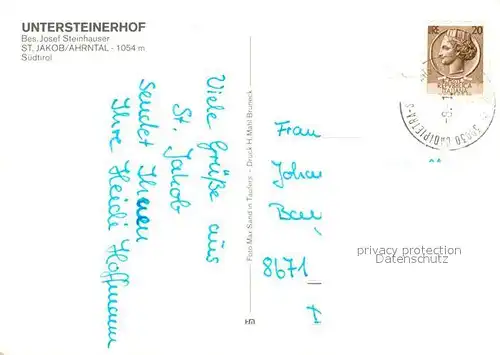 UNTERSTEINERHOF
Bes. Josef Steinhauser
ST. JAKOB/AHRNTAL - 1054 m
Südtirol
Viele Grüße aus
St. Jakob
sendet Ihnen
Ihre Heidi Hoffmann
Foto Max Sand in Taufers - Druck H. Mahl Bruneck
LIRE 20
REPUBBLICA
ITALIANA
Frau
8671
privacy protection
Datenschutz